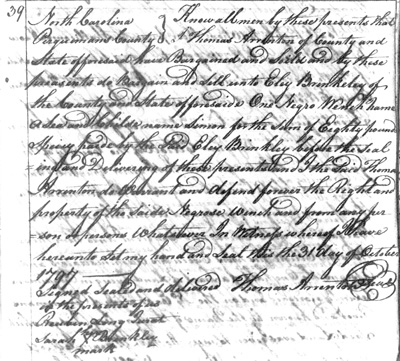 39
North Carolina } Know all men by these presents that
Perquimans County } I Thomas Arrenton of County and
State aforesaid have Bargained and Sold and by these
presents do Bargain and Sell unto Eley Brinkeley of
the County and State aforesaide One Negro Wench name
Lea and Childe name Simon for the Sum of Eighty pound
Specey paide by the Said Eley Brinkley before the Seal
ing and Delivering of these presents and I the Said Thomas
Arrenton do Warrant and defend forever the Right and
property of the Saide Negrose Wench and from any per
son or persons Whatsoever In Witness whereof I have
hereunto Set my hand and Seal this the 31 day of October
1797
Signed Sealed and delivered Thomas Arrenton Seal
in the presents of us
Reuben Long Jurat
Sarah Brinkley
mark